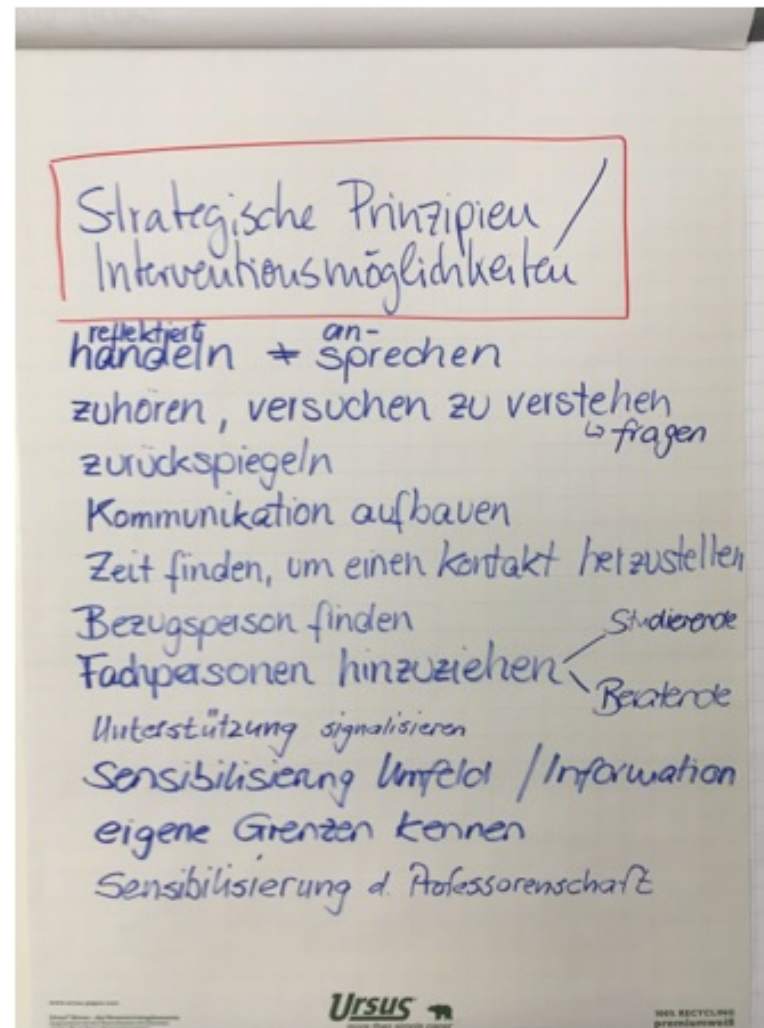 Strategische Prinzipien /
Interventionsmöglichkeiten
reflektiert an-
handeln + sprechen
zuhören, versuchen zu verstehen
↳ fragen
zurückspiegeln
Kommunikation aufbauen
Zeit finden, um einen Kontakt herzustellen
Bezugsperson finden
Studierende
Fachpersonen hinzuziehen
Beratende
Unterstützung signalisieren
Sensibilisierung Umfeld / Information
eigene Grenzen kennen
Sensibilisierung d. Professorenschaft
Ursus
100% RECYCLING
premiumweiß